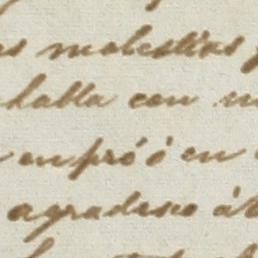 as molestias
habla con
en pró ó en
agradesco á